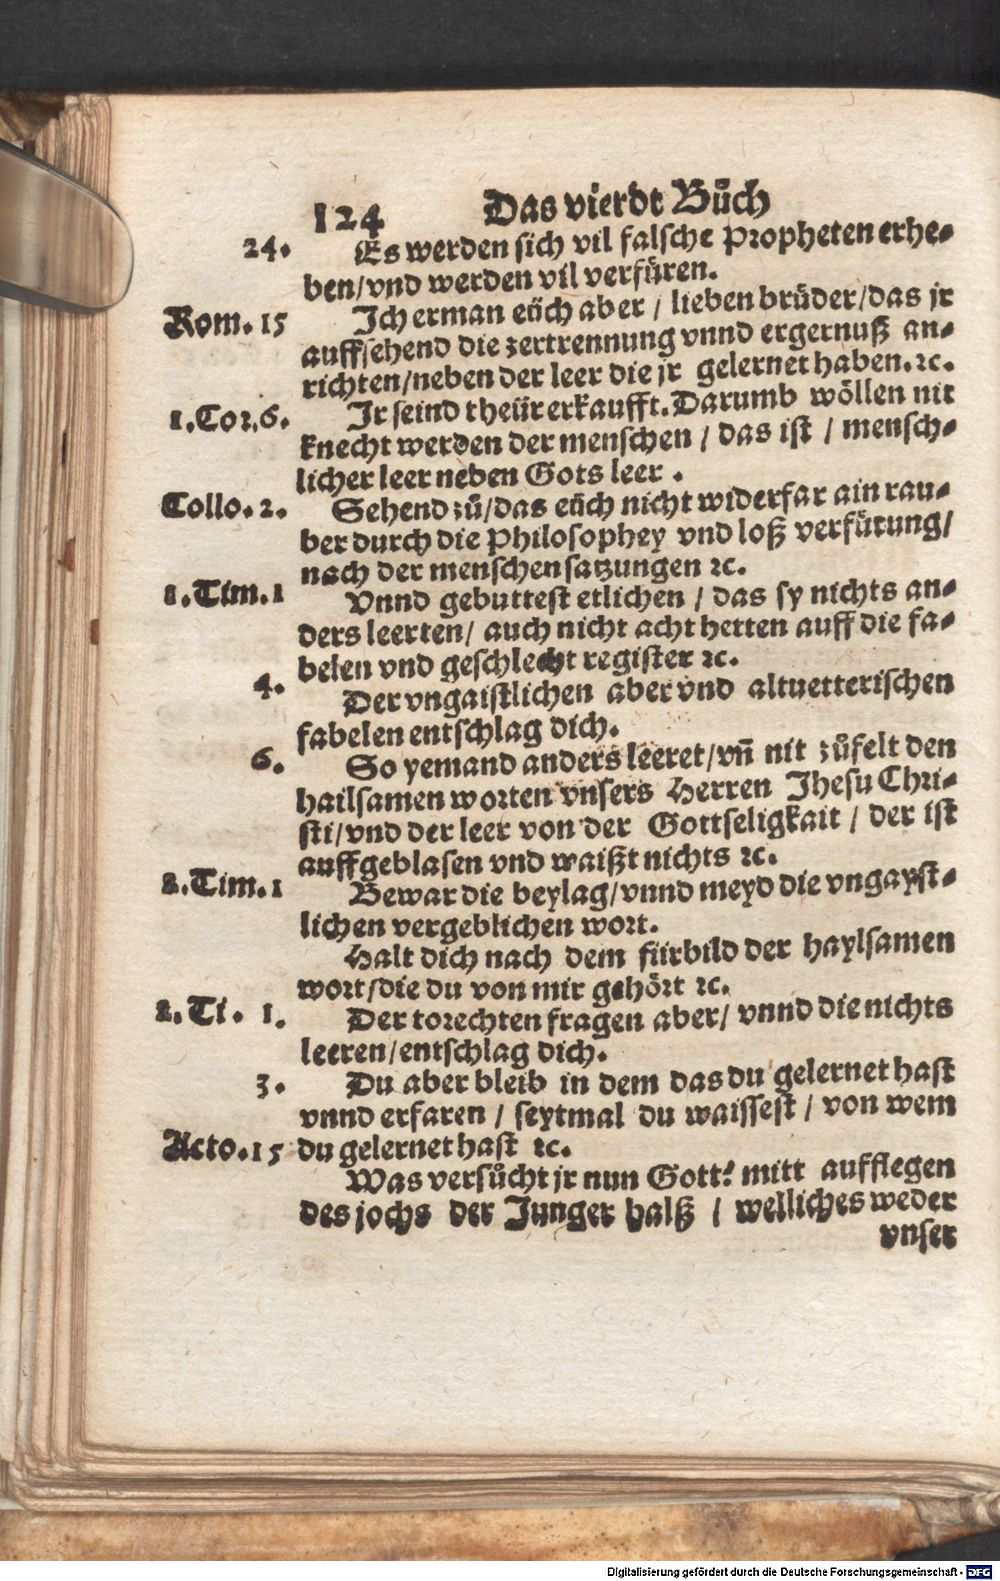 124 Das vierdt Bůch
24. Es werden sich vil falsche Propheten erhe-
ben/vnd werden vil verfüren.
Rom. 15 Ich erman eüch aber / lieben brüder/das jr
auffsehend die zertrennung vnnd ergernuß an-
richten/neben der leer die jr gelernet haben.ꝛc.
1.Cor.6. Ir seind theür erkaufft. Darumb wöllen nit
knecht werden der menschen / das ist / mensch-
licher leer neben Gots leer .
Collo.2. Sehend zů/das eüch nicht widerfar ain rau-
ber durch die Philosophey vnd loß verfürung/
nach der menschen satzungen ꝛc.
1.Tim.1 Vnnd gebuttest etlichen / das sy nichts an-
ders leerten/ auch nicht acht hetten auff die fa-
belen vnd geschlecht register ꝛc.
4. Der vngaistlichen aber vnd altuetterischen
fabelen entschlag dich.
6. So yemand anders leeret/vn̄ nit zůfelt den
hailsamen worten vnsers Herren Jhesu Chri-
sti/vnd der leer von der Gottseligkait / der ist
auffgeblasen vnd waißt nichts ꝛc.
2.Tim.1 Bewar die beylag/vnnd meyd die vngayst-
lichen vergeblichen wort.
Halt dich nach dem fürbild der haylsamen
wort/die du von mir gehört ꝛc.
2.Ti. 1. Der torechten fragen aber/ vnnd die nichts
leeren/entschlag dich.
3. Du aber bleib in dem das du gelernet hast
vnnd erfaren / seytmal du waissest / von wem
Acto.15 du gelernet hast ꝛc.
Was versůcht jr nun Gott? mitt aufflegen
des jochs der Junger halß / welliches weder
vnser
Digitalisierung gefördert durch die Deutsche Forschungsgemeinschaft - DFG